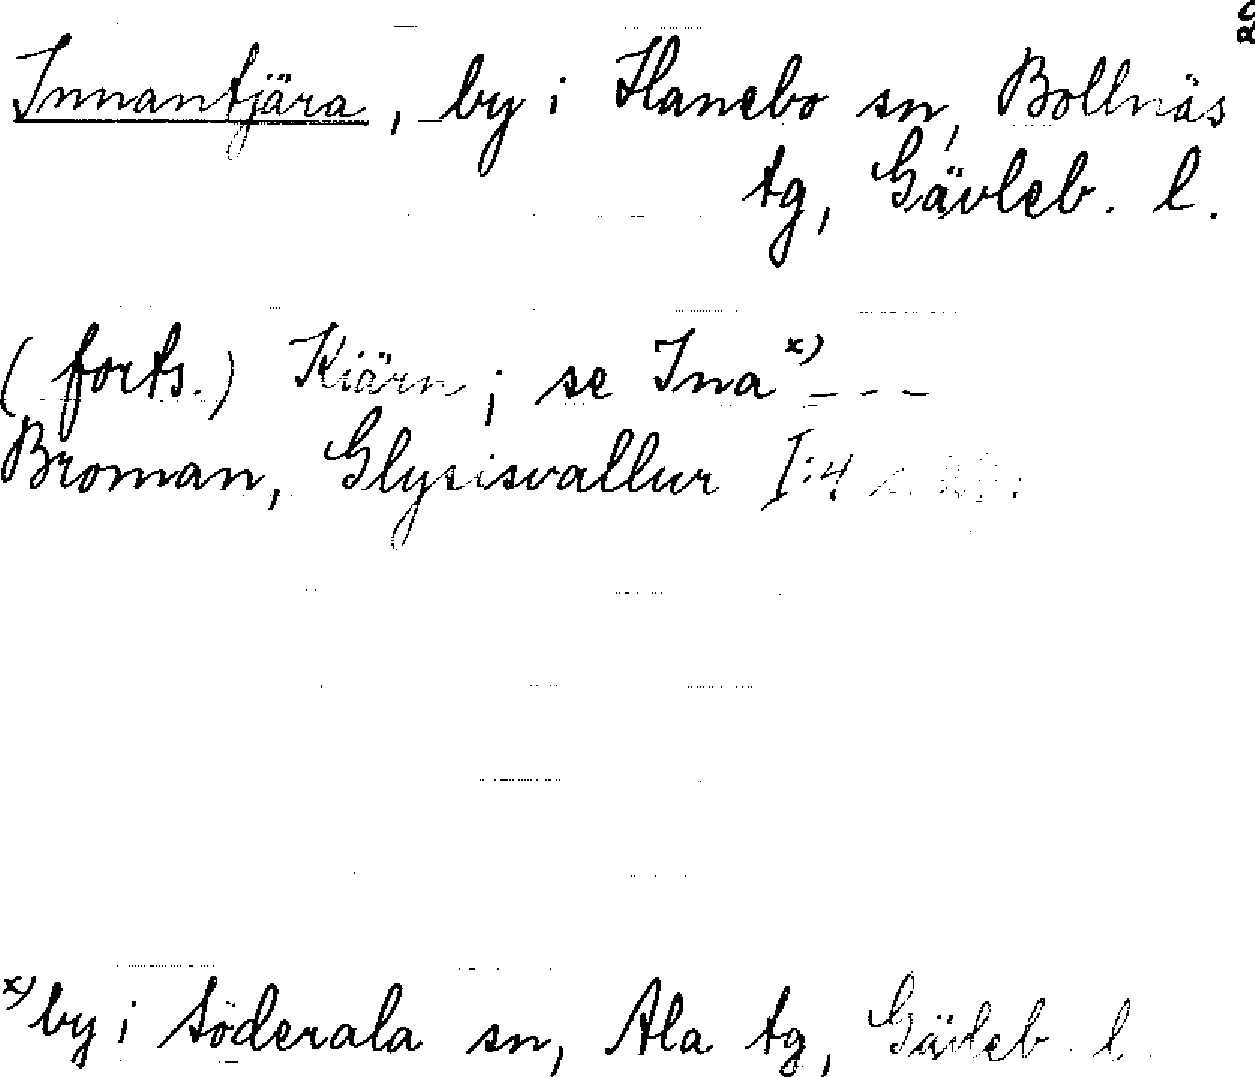 Innantjära, by i Hanebo sn, Bollnäs
tg, Gävleb. l.
(forts.) Kiärn; se Ina x) - - -
Broman, Glysisvallur I:4 s.
x) by i Söderala sn, Ala tg, Gävleb. l.